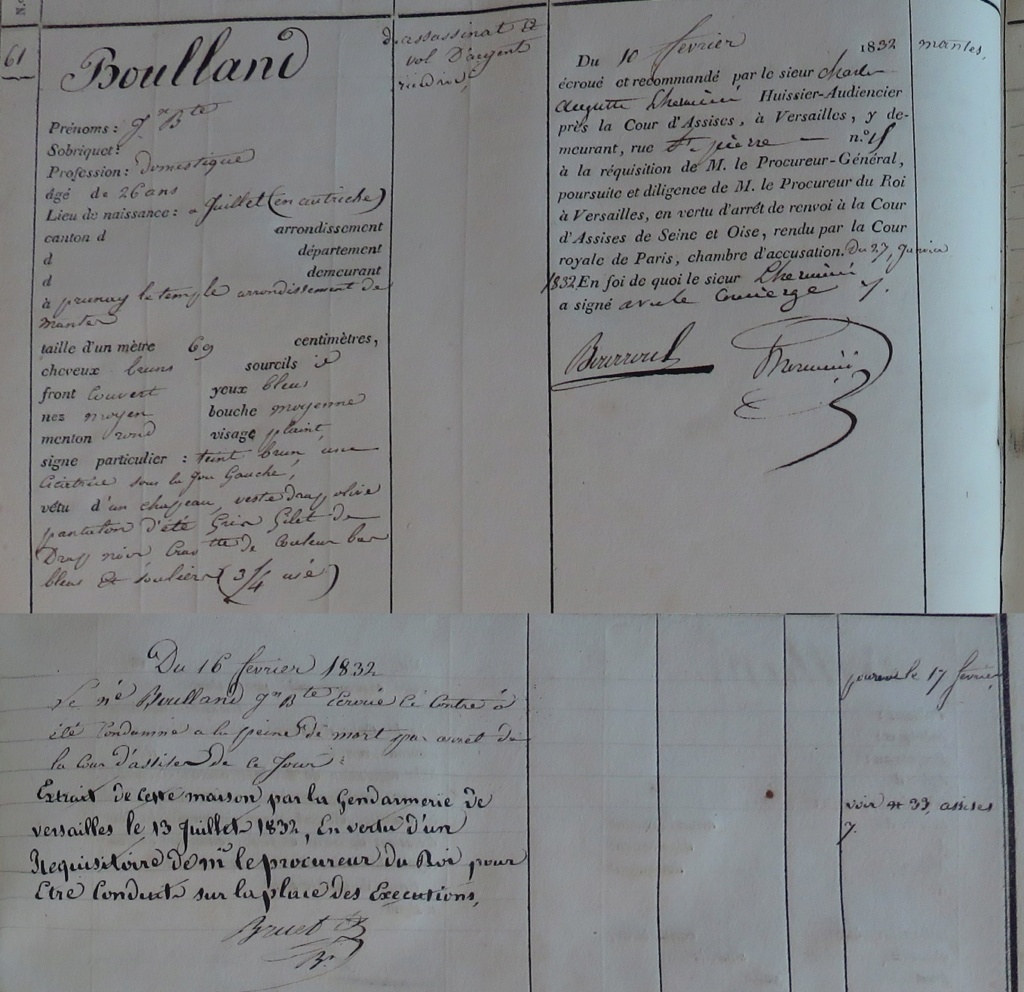 N.o
61
Boulland
Prénoms : Jn Bte
Sobriquet :
Profession : Domestique
âgé de 26 ans
Lieu de naissance : a Juillet (en autriche)
canton d arrondissement
d département
d demeurant
à prunay le temple arrondissement de
mantes
taille d'un mètre 69 centimètres,
cheveux bruns sourcils id
front couvert yeux bleus
nez moyen bouche moyenne
menton rond visage plaint
signe particulier : teint brun, une
Cicatrice sous la Joue Gauche,
vêtu d'un chapeau, veste drap olive
pantalon d'été Gris Gilet de
Drap noir Cravtte de Couleur bas
bleus et souliers (3/4 usé)
d'assassinat et
vol D'argent
Du 10 fevrier 1832
écroué et recommandé par le sieur Charles
Auguste Lherminé Huissier-Audiencier
près la Cour d'Assises, à Versailles, y de-
meurant, rue St pierre — n.º 15
à la réquisition de M. le Procureur-Général,
poursuite et diligence de M. le Procureur du Roi
à Versailles, en vertu d'arrêt de renvoi à la Cour
d'Assises de Seine et Oise, rendu par la Cour
royale de Paris, chambre d'accusation. Du 27, Janvier
1832 En foi de quoi le sieur Lherminé
a signé avec le Concierge
mantes,
Lherminé
Du 16 fevrier 1832
Le né Boulland Jn Bte Ecroué Ci Contre à
été Condamné a la peine de mort par arret de
la Cour d'assises de ce Jour
Extrait de cette maison par la Gendarmerie de
versailles le 13 Juillet 1832, En vertu d'un
Requisitoire de mr le procureur du Roi pour
Etre Conduit sur la place des Executions,
Bruet
pourvu le 17 fevrier
voir nº 33, assises